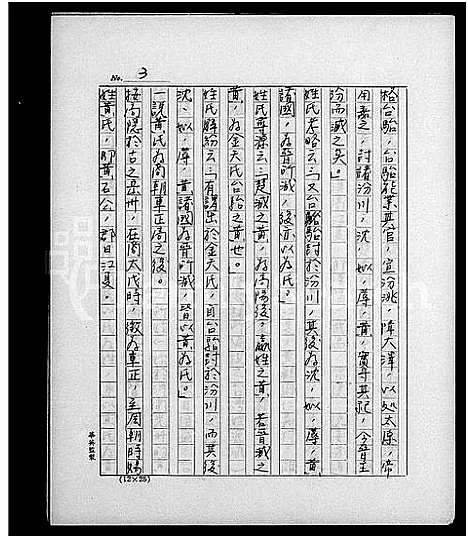 No. 3
格台駘,台駘能業其官,宣汾洮,障大澤,以处太原,帝
用嘉之,討諸汾川,沈,姒,蓐,黄,實守其祀,今晉主
汾而滅之矣。」
姓氏考略云:「又台駘討於汾川,其後為沈,姒,蓐,黄
諸國,為晉所滅,後亦以為氏。
姓氏尋源云:「楚滅之黄,為陽後,嬴姓之黄,若晉滅之
黄,為金天氏台駘之黄也。」
姓氏解紛云:「有謂出於金天氏,自台駘討於汾川,而其後
沈、姒,蓐,黄諸國為晉所滅,皆以黄為氏。」
一說黄氏為商朝車正局之後。
按局隱於古之,在商太戊時,徵為車正,至周朝時賜
姓黄氏,即黄石公,郡曰江夏。
(12×25)